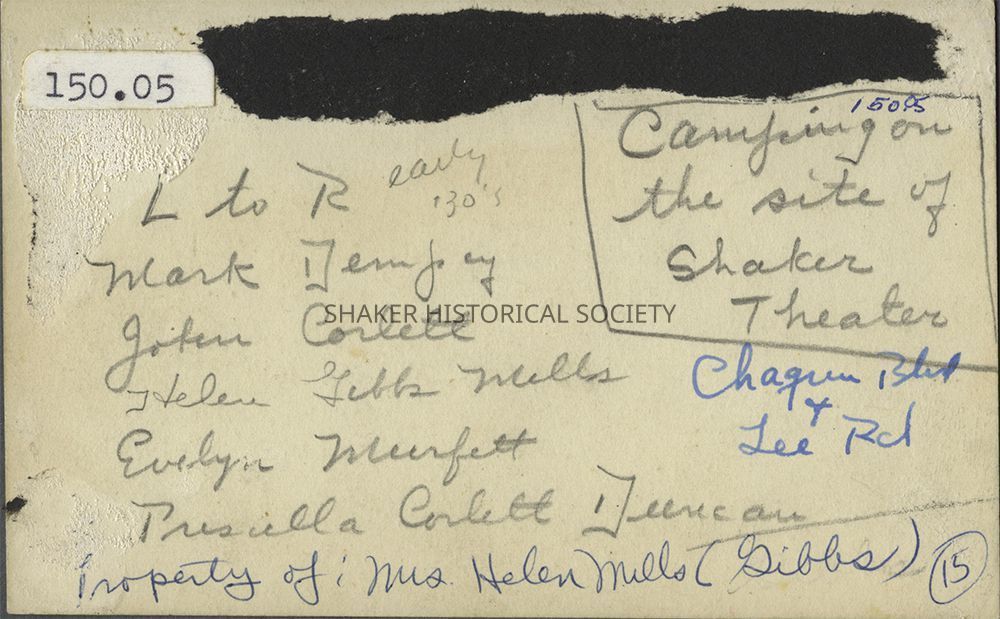 150.05
15005
Camping on
the site of
Shaker
Theater
Chagrin Blvd
+
Lee Rd
L to R early
'30's
Mark Dempsy
John Corlett
Helen Gibbs Mills
Evelyn Murfett
Priscilla Corlett Duncan
Property of: Mrs. Helen Mills (Gibbs) 15
SHAKER HISTORICAL SOCIETY